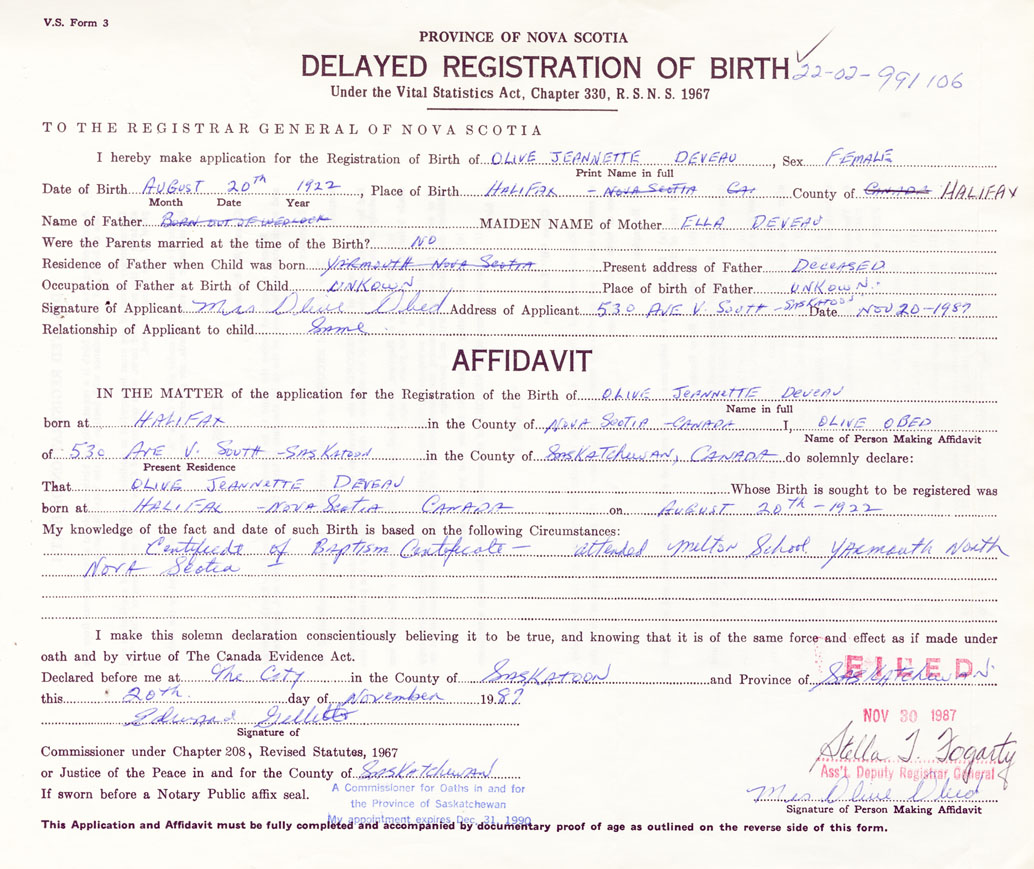 V.S. Form 3
PROVINCE OF NOVA SCOTIA
DELAYED REGISTRATION OF BIRTH 22-02-991106
Under the Vital Statistics Act, Chapter 330, R.S.N.S. 1967
TO THE REGISTRAR GENERAL OF NOVA SCOTIA
I hereby make application for the Registration of Birth of OLIVE JEANNETTE DEVEAU, Sex FEMALE
Print Name in full
Date of Birth AUGUST 20th 1922, Place of Birth HALIFAX - NOVA SCOTIA Ca. County of CANADA HALIFAX
Month Date Year
Name of Father BORN OUT OF WEDLOCK MAIDEN NAME of Mother ELLA DEVEAU
Were the Parents married at the time of the Birth? NO
Residence of Father when Child was born YARMOUTH NOVA SCOTIA Present address of Father DECEASED
Occupation of Father at Birth of Child UNKOWN Place of birth of Father UNKOWN.
Signature of Applicant Mrs Olive Obed Address of Applicant 530 AVE V. SOUTH - SASKATOON Date NOV 20-1987
Relationship of Applicant to child Same
AFFIDAVIT
IN THE MATTER of the application for the Registration of the Birth of OLIVE JEANNETTE DEVEAU
Name in full
born at HALIFAX in the County of NOVA SCOTIA - CANADA I, OLIVE OBED
Name of Person Making Affidavit
of 530 AVE V. SOUTH - SASKATOON in the County of SASKATCHEWAN, CANADA do solemnly declare:
Present Residence
That OLIVE JEANNETTE DEVEAU Whose Birth is sought to be registered was
born at HALIFAX - NOVA SCOTIA CANADA on AUGUST 20th - 1922
My knowledge of the fact and date of such Birth is based on the following Circumstances:
Certificate of Baptism Certificate - attended Milton School Yarmouth North
Nova Scotia
I make this solemn declaration conscientiously believing it to be true, and knowing that it is of the same force and effect as if made under
oath and by virtue of The Canada Evidence Act.
FILED
Declared before me at The City in the County of SASKATOON and Province of SASKATCHEWAN.
this 20th day of November 1987
NOV 30 1987
Edward Gillette
Signature of
Stella T. Fogarty
Commissioner under Chapter 208, Revised Statutes, 1967
or Justice of the Peace in and for the County of SASKATCHEWAN
Ass't. Deputy Registrar General
A Commissioner for Oaths in and for
If sworn before a Notary Public affix seal.
Mrs Olive Obed
the Province of Saskatchewan
Signature of Person Making Affidavit
My appointment expires Dec. 31, 1990
This Application and Affidavit must be fully completed and accompanied by documentary proof of age as outlined on the reverse side of this form.